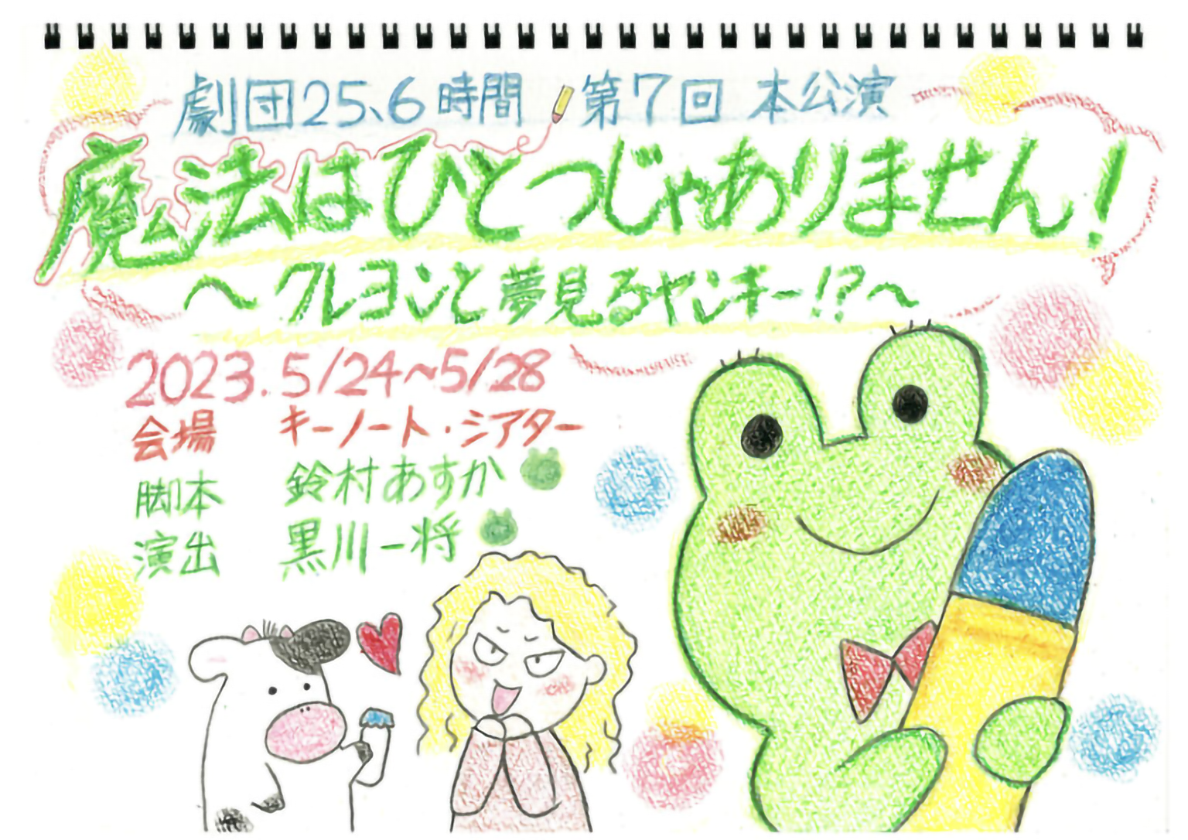 劇団25、6時間 第7回 本公演
魔法はひとつじゃありません!
～クレヨンと夢見るヤンキー!?～
2023.5/24~5/28
会場 キーノート・シアター
脚本 鈴村あすか
演出 黒川一将